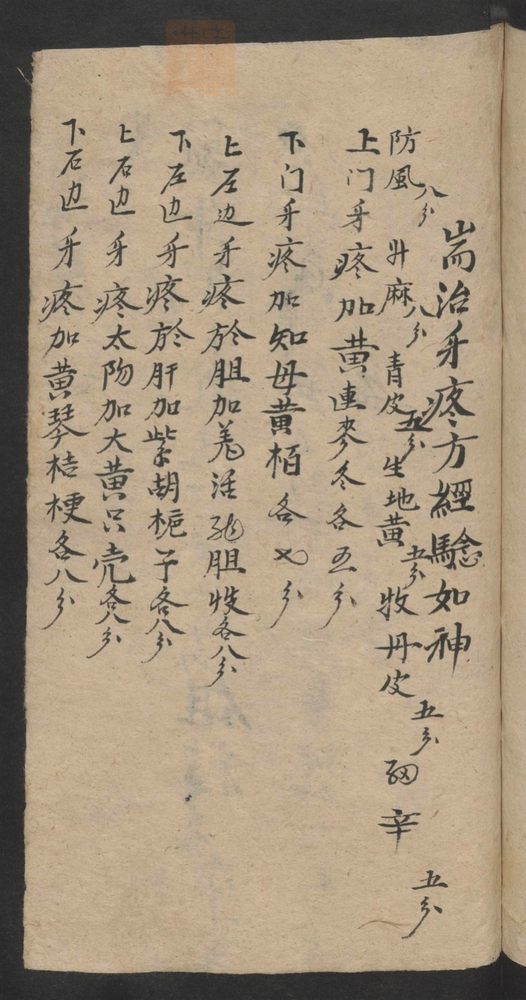 耑治牙疼方經驗如神
防風八分 升麻八分 青皮五分 生地黄五分 牧丹皮五分 細辛五分
上门牙疼加黄連麥冬各五分
下门牙疼加知母黄栢各七分
上左边牙疼於胆加羗活龍胆牧各八分
下左边牙疼於肝加紫胡栀子各八分
上右边牙疼太阳加大黄只壳各八分
下右边牙疼加黄琴桔梗各八分